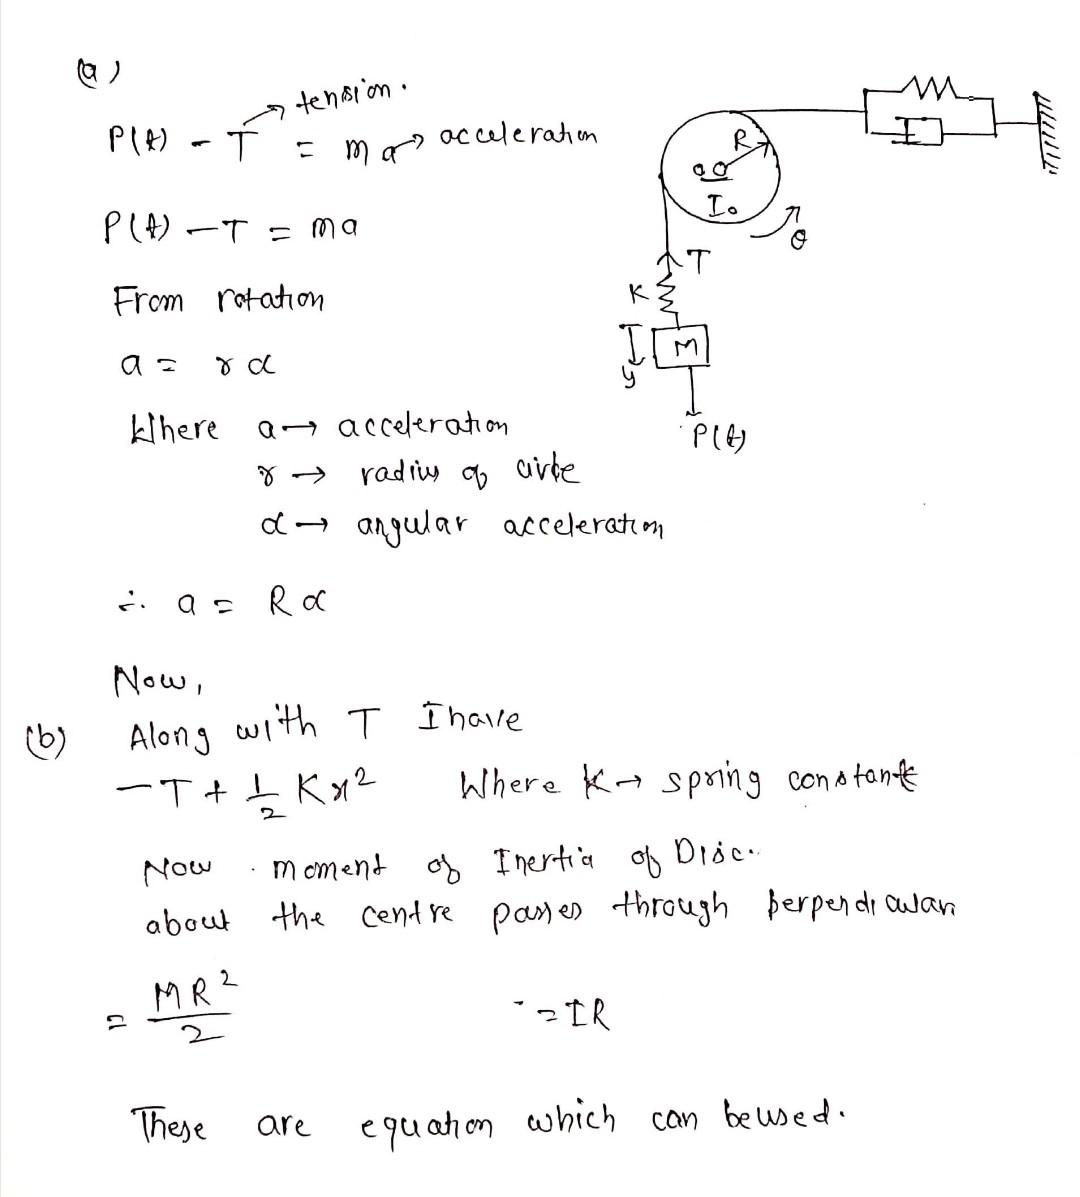 (a)
→ tension.
P(t) - T = ma → acceleration
P(t) - T = ma
From rotation
a = r α
Where a → acceleration
r → radius of circle
α → angular acceleration
∴ a = R α
R
O
I₀
θ
T
K
M
y
P(t)
Now,
(b) Along with T I have
-T + 1/2 Kx² Where K → spring constant
Now . moment of Inertia of Disc.
about the centre passes through perpendicular
= MR²/2 = IR
These are equation which can be used.